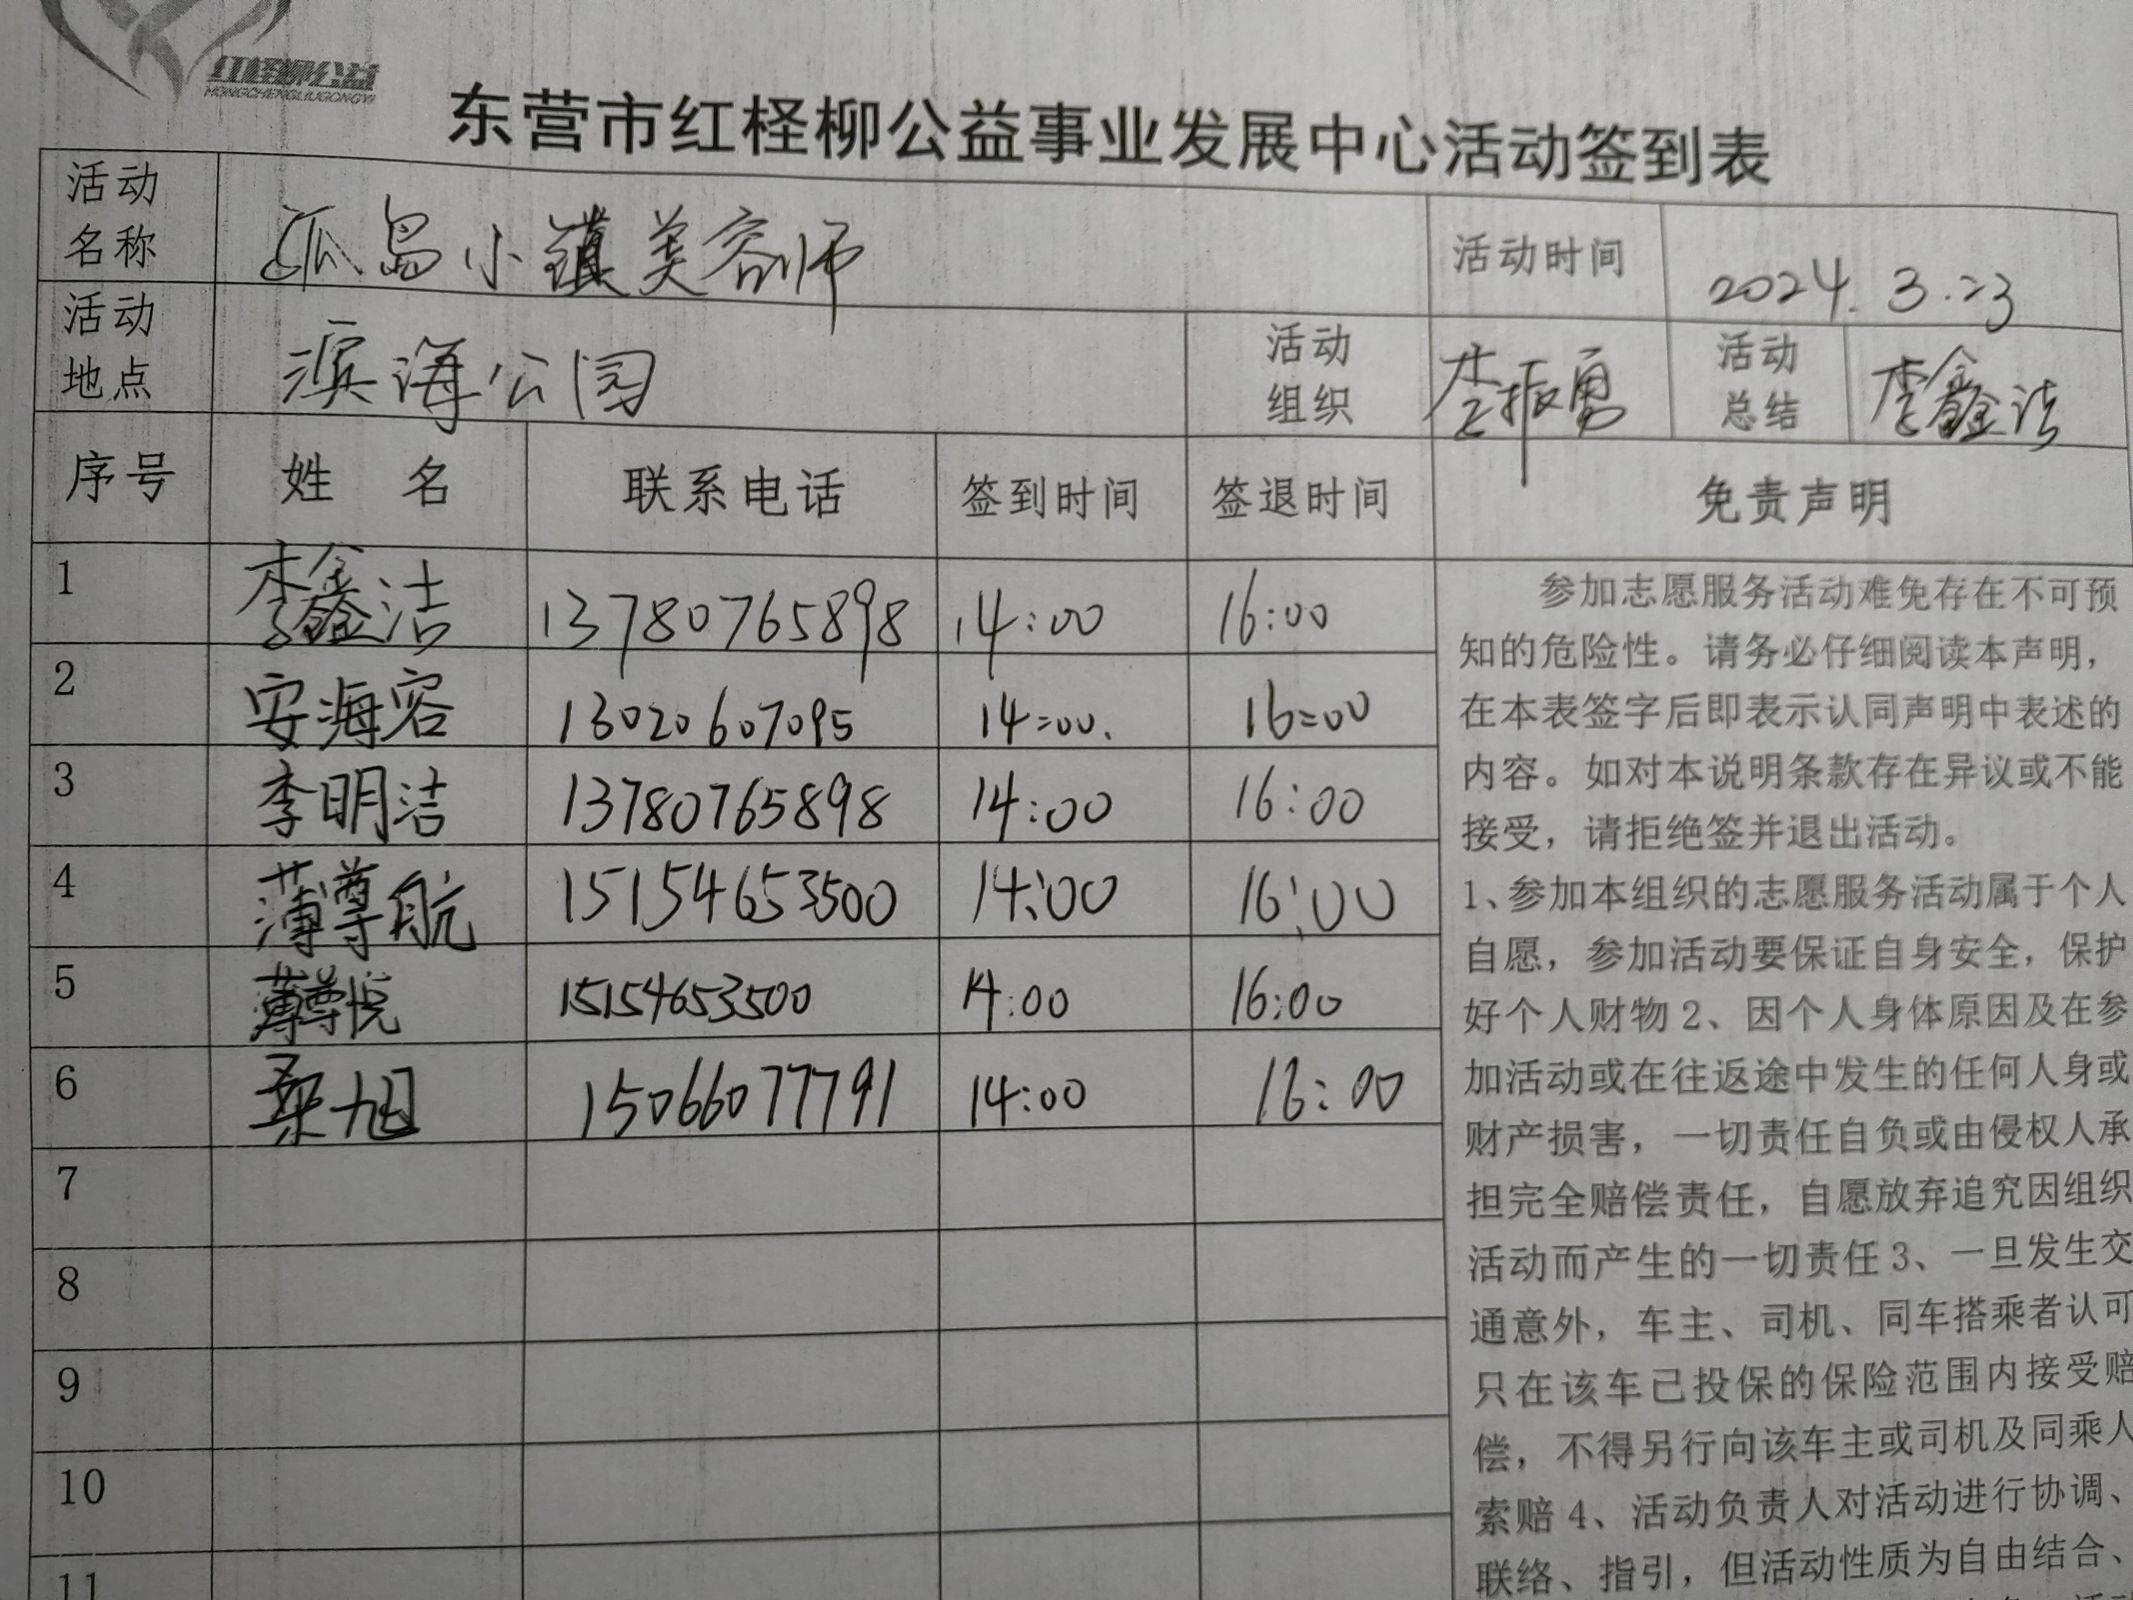 红柽柳公益
HONGCHENGLIUGONGYI
东营市红柽柳公益事业发展中心活动签到表
活动名称 孤岛小镇美容师 活动时间 2024.3.23
活动地点 滨海公园 活动组织 李振勇 活动总结 李鑫洁
序号 姓 名 联系电话 签到时间 签退时间 免责声明
1 李鑫洁 13780765898 14:00 16:00
2 安海容 13020607095 14:00. 16:00
3 李明洁 13780765898 14:00 16:00
4 薄尊航 15154653500 14:00 16:00
5 薄尊悦 15154653500 14:00 16:00
6 桑旭 15066077791 14:00 16:00
7
8
9
10
11
参加志愿服务活动难免存在不可预
知的危险性。请务必仔细阅读本声明，
在本表签字后即表示认同声明中表述的
内容。如对本说明条款存在异议或不能
接受，请拒绝签并退出活动。
1、参加本组织的志愿服务活动属于个人
自愿，参加活动要保证自身安全，保护
好个人财物2、因个人身体原因及在参
加活动或在往返途中发生的任何人身或
财产损害，一切责任自负或由侵权人承
担完全赔偿责任，自愿放弃追究因组织
活动而产生的一切责任3、一旦发生交
通意外，车主、司机、同车搭乘者认可
只在该车已投保的保险范围内接受赔
偿，不得另行向该车主或司机及同乘人
索赔4、活动负责人对活动进行协调、
联络、指引，但活动性质为自由结合、